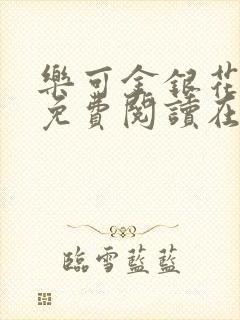 樂可金銀花
免費閱讀在
臨雪藍藍